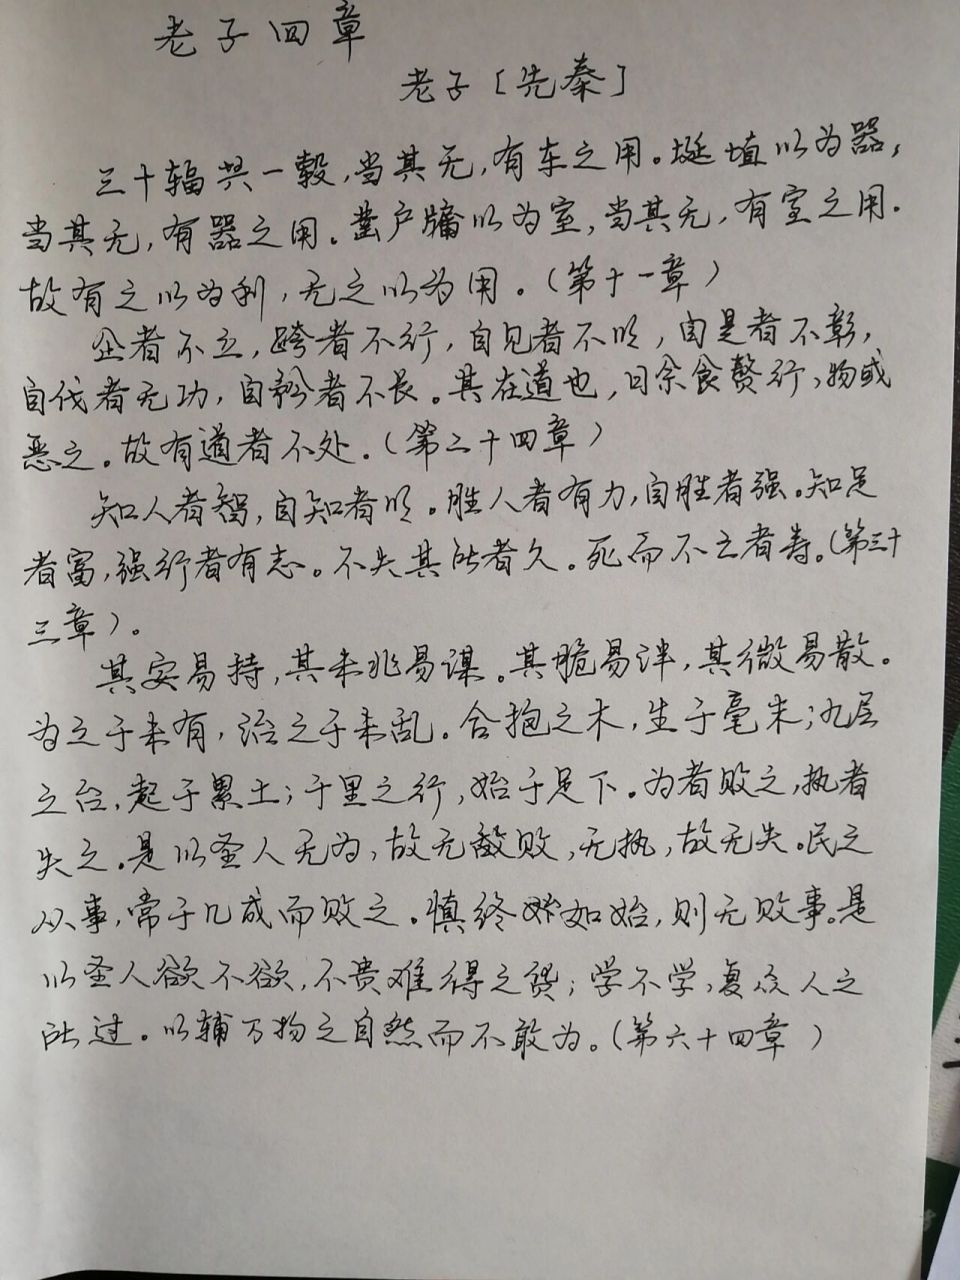 老子四章
老子［先秦］
三十辐共一毂，当其无，有车之用。埏埴以为器，
当其无，有器之用。凿户牖以为室，当其无，有室之用。
故有之以为利，无之以为用。（第十一章）
企者不立，跨者不行，自见者不明，自是者不彰，
自伐者无功，自矜者不长。其在道也，曰余食赘行，物或
恶之。故有道者不处。（第二十四章）
知人者智，自知者明。胜人者有力，自胜者强。知足
者富，强行者有志。不失其所者久。死而不亡者寿。（第三十
三章）。
其安易持，其未兆易谋。其脆易泮，其微易散。
为之于未有，治之于未乱。合抱之木，生于毫末；九层
之台，起于累土；千里之行，始于足下。为者败之，执者
失之。是以圣人无为，故无败，无执，故无失。民之
从事，常于几成而败之。慎终如始，则无败事。是
以圣人欲不欲，不贵难得之货；学不学，复众人之
所过。以辅万物之自然而不敢为。（第六十四章）